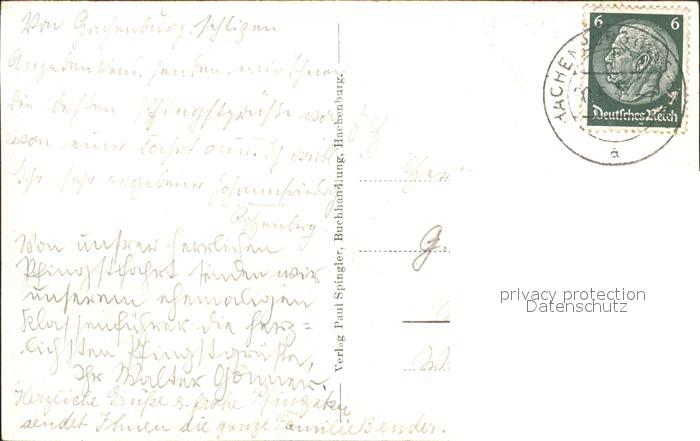 Von Hachenburg, seligen
Angedenkens, senden wir Ihnen
die besten Pfingstgrüße von
von einer Fahrt aus. Ich
Ihr sehr ergebener
Von unsrer herrlichen
Pfingstfahrt senden wir
unserem ehemaligen
Klassenführer die herz=
lichsten Pfingstgrüße,
Ihr Walter Gönner.
Herzliche Grüße u. frohe Pfingsten
sendet Ihnen die ganze Familie Bender.
Verlag Paul Spingler, Buchhandlung, Hachenburg.
6 6
Deutsches Reich
AACHEN
a
Her
G.
W
privacy protection
Datenschutz